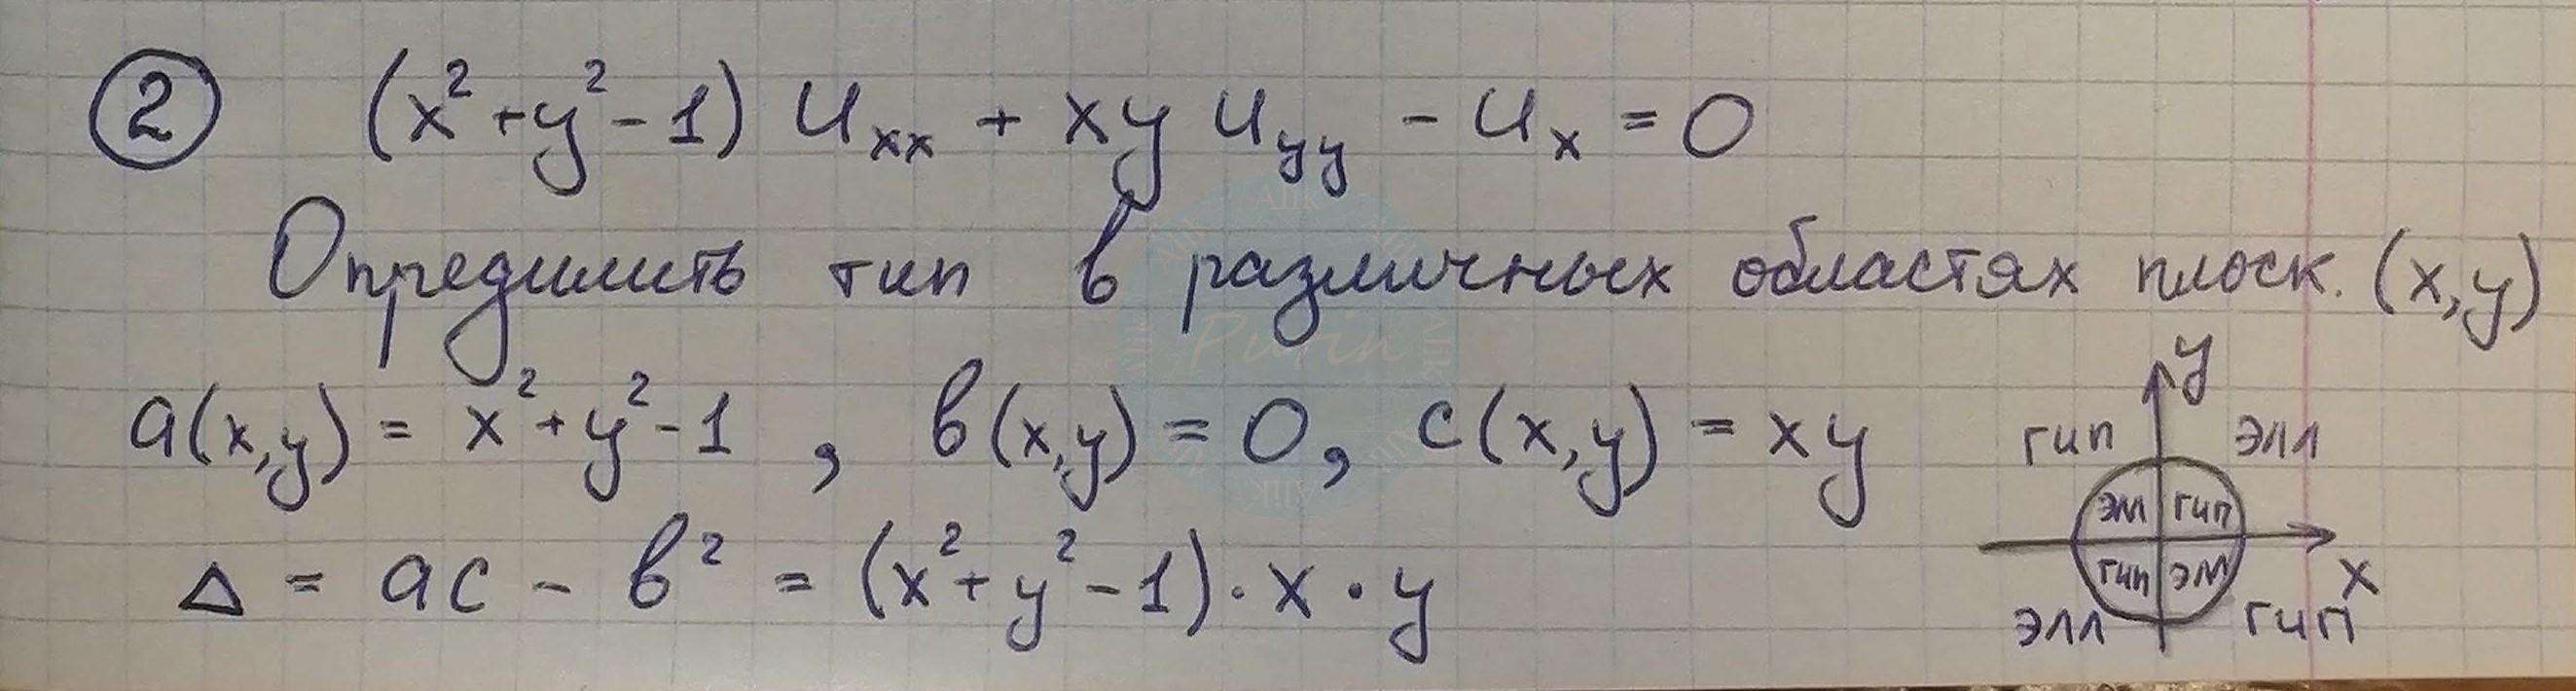 2 (x²+y²-1) Uxx + xy Uyy - Ux = 0
Определить тип в различных областях плоск. (x,y)
a(x,y) = x²+y²-1 , b(x,y) = 0, c(x,y) = xy
Δ = ac - b² = (x²+y²-1)·x·y
y
гип элл
элл гип
x
гип элл
элл гип
Putin